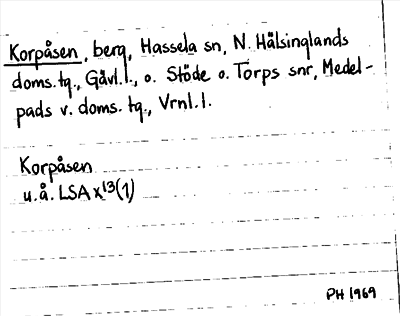 Korpåsen, berg, Hassela sn, N. Hälsinglands
doms.tg., Gävl.l., o. Stöde o. Torps snr, Medel-
pads v. doms. tg., Vrnl.l.
Korpåsen
u.å. LSA x¹³(1)
PH 1969